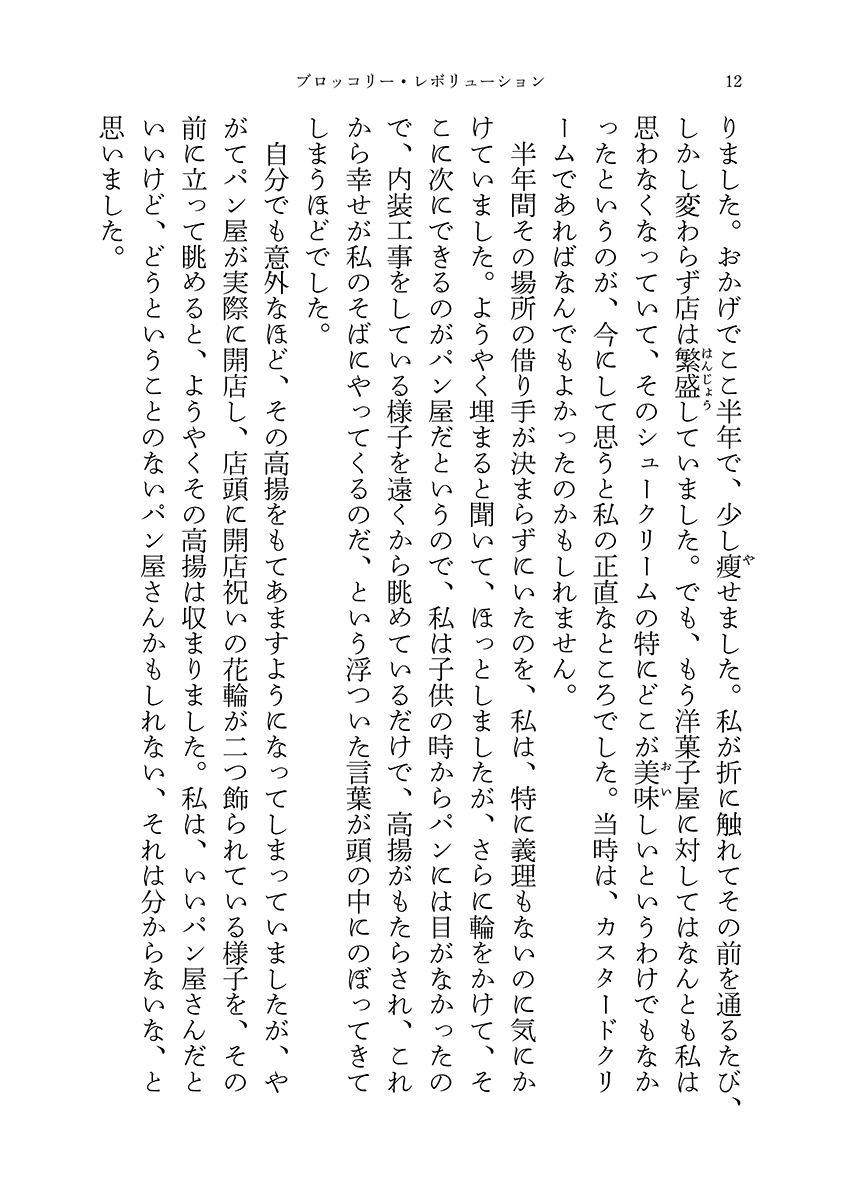 ブロッコリー・レボリューション
12
りました。おかげでここ半年で、少し痩せました。私が折に触れてその前を通るたび、
しかし変わらず店は繁盛していました。でも、もう洋菓子屋に対してはなんとも私は
思わなくなっていて、そのシュークリームの特にどこが美味しいというわけでもなか
ったというのが、今にして思うと私の正直なところでした。当時は、カスタードクリ
ームであればなんでもよかったのかもしれません。
半年間その場所の借り手が決まらずにいたのを、私は、特に義理もないのに気にか
けていました。ようやく埋まると聞いて、ほっとしましたが、さらに輪をかけて、そ
こに次にできるのがパン屋だというので、私は子供の時からパンには目がなかったの
で、内装工事をしている様子を遠くから眺めているだけで、高揚がもたらされ、これ
から幸せが私のそばにやってくるのだ、という浮ついた言葉が頭の中にのぼってきて
しまうほどでした。
自分でも意外なほど、その高揚をもてあますようになってしまっていましたが、や
がてパン屋が実際に開店し、店頭に開店祝いの花輪が二つ飾られている様子を、その
前に立って眺めると、ようやくその高揚は収まりました。私は、いいパン屋さんだと
いいけど、どうということのないパン屋さんかもしれない、それは分からないな、と
思いました。